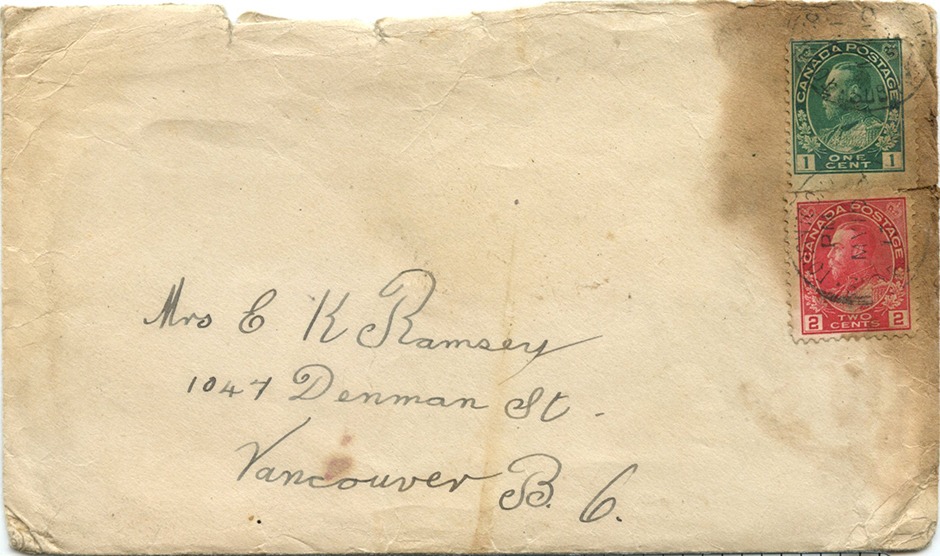 CANADA POSTAGE
1 ONE CENT 1
CANADA POSTAGE
PM
2 TWO CENTS 2
Mrs E K Ramsey
1047 Denman St.
Vancouver B. C.